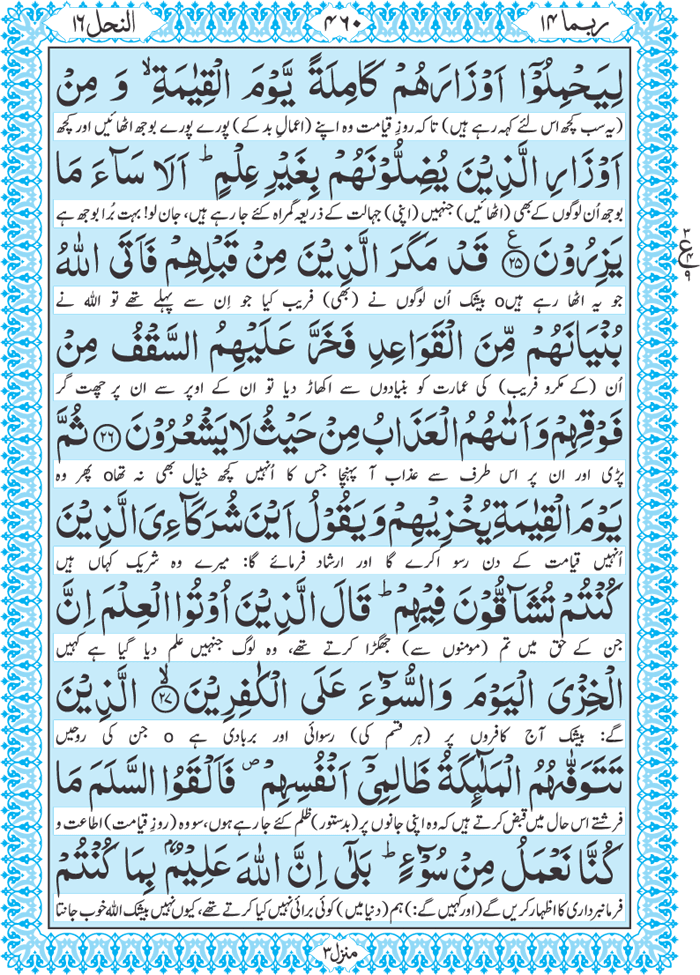 ربما ۱۴
۴۶۰
النحل ۱۶
لِيَحْمِلُوْۤا اَوْزَارَهُمْ كَامِلَةً يَّوْمَ الْقِيٰمَةِ ۙ وَ مِنْ
(یہ سب کچھ اس لئے کہہ رہے ہیں) تاکہ روزِ قیامت وہ اپنے (اعمالِ بد کے) پورے پورے بوجھ اٹھائیں اور کچھ
اَوْزَارِ الَّذِيْنَ يُضِلُّوْنَهُمْ بِغَيْرِ عِلْمٍ ؕ اَلَا سَآءَ مَا
بوجھ اُن لوگوں کے بھی (اٹھائیں) جنہیں (اپنی) جہالت کے ذریعہ گمراہ کئے جا رہے ہیں، جان لو! بہت بُرا بوجھ ہے
يَزِرُوْنَ ﴿۲۵﴾ ع قَدْ مَكَرَ الَّذِيْنَ مِنْ قَبْلِهِمْ فَاَتَى اللّٰهُ
۳
ع
۴
۹
جو یہ اٹھا رہے ہیںo بیشک اُن لوگوں نے (بھی) فریب کیا جو اِن سے پہلے تھے تو اللہ نے
بُنْيَانَهُمْ مِّنَ الْقَوَاعِدِ فَخَرَّ عَلَيْهِمُ السَّقْفُ مِنْ
اُن (کے مکر و فریب) کی عمارت کو بنیادوں سے اکھاڑ دیا تو ان کے اوپر سے ان پر چھت گر
فَوْقِهِمْ وَ اَتٰىهُمُ الْعَذَابُ مِنْ حَيْثُ لَا يَشْعُرُوْنَ ﴿۲۶﴾ ثُمَّ
پڑی اور ان پر اس طرف سے عذاب آ پہنچا جس کا اُنہیں کچھ خیال بھی نہ تھاo پھر وہ
يَوْمَ الْقِيٰمَةِ يُخْزِيْهِمْ وَ يَقُوْلُ اَيْنَ شُرَكَآءِيَ الَّذِيْنَ
اُنہیں قیامت کے دن رسوا کرے گا اور ارشاد فرمائے گا: میرے وہ شریک کہاں ہیں
كُنْتُمْ تُشَآقُّوْنَ فِيْهِمْ ؕ قَالَ الَّذِيْنَ اُوْتُوا الْعِلْمَ اِنَّ
جن کے حق میں تم (مومنوں سے) جھگڑا کرتے تھے، وہ لوگ جنہیں علم دیا گیا ہے کہیں
الْخِزْيَ الْيَوْمَ وَ السُّوْٓءَ عَلَى الْكٰفِرِيْنَ ﴿۲۷﴾ ۙ الَّذِيْنَ
گے: بیشک آج کافروں پر (ہر قسم کی) رسوائی اور بربادی ہے o جن کی روحیں
تَتَوَفّٰىهُمُ الْمَلٰٓئِكَةُ ظَالِمِيْۤ اَنْفُسِهِمْ ۪ فَاَلْقَوُا السَّلَمَ مَا
فرشتے اس حال میں قبض کرتے ہیں کہ وہ اپنی جانوں پر (بدستور) ظلم کئے جا رہے ہوں، سو وہ (روزِ قیامت) اطاعت و
كُنَّا نَعْمَلُ مِنْ سُوْٓءٍ ؕ بَلٰۤى اِنَّ اللّٰهَ عَلِيْمٌۢ بِمَا كُنْتُمْ
فرمانبرداری کا اظہار کریں گے (اور کہیں گے:) ہم (دنیا میں) کوئی برائی نہیں کیا کرتے تھے، کیوں نہیں بیشک اللہ خوب جانتا
منزل ۳